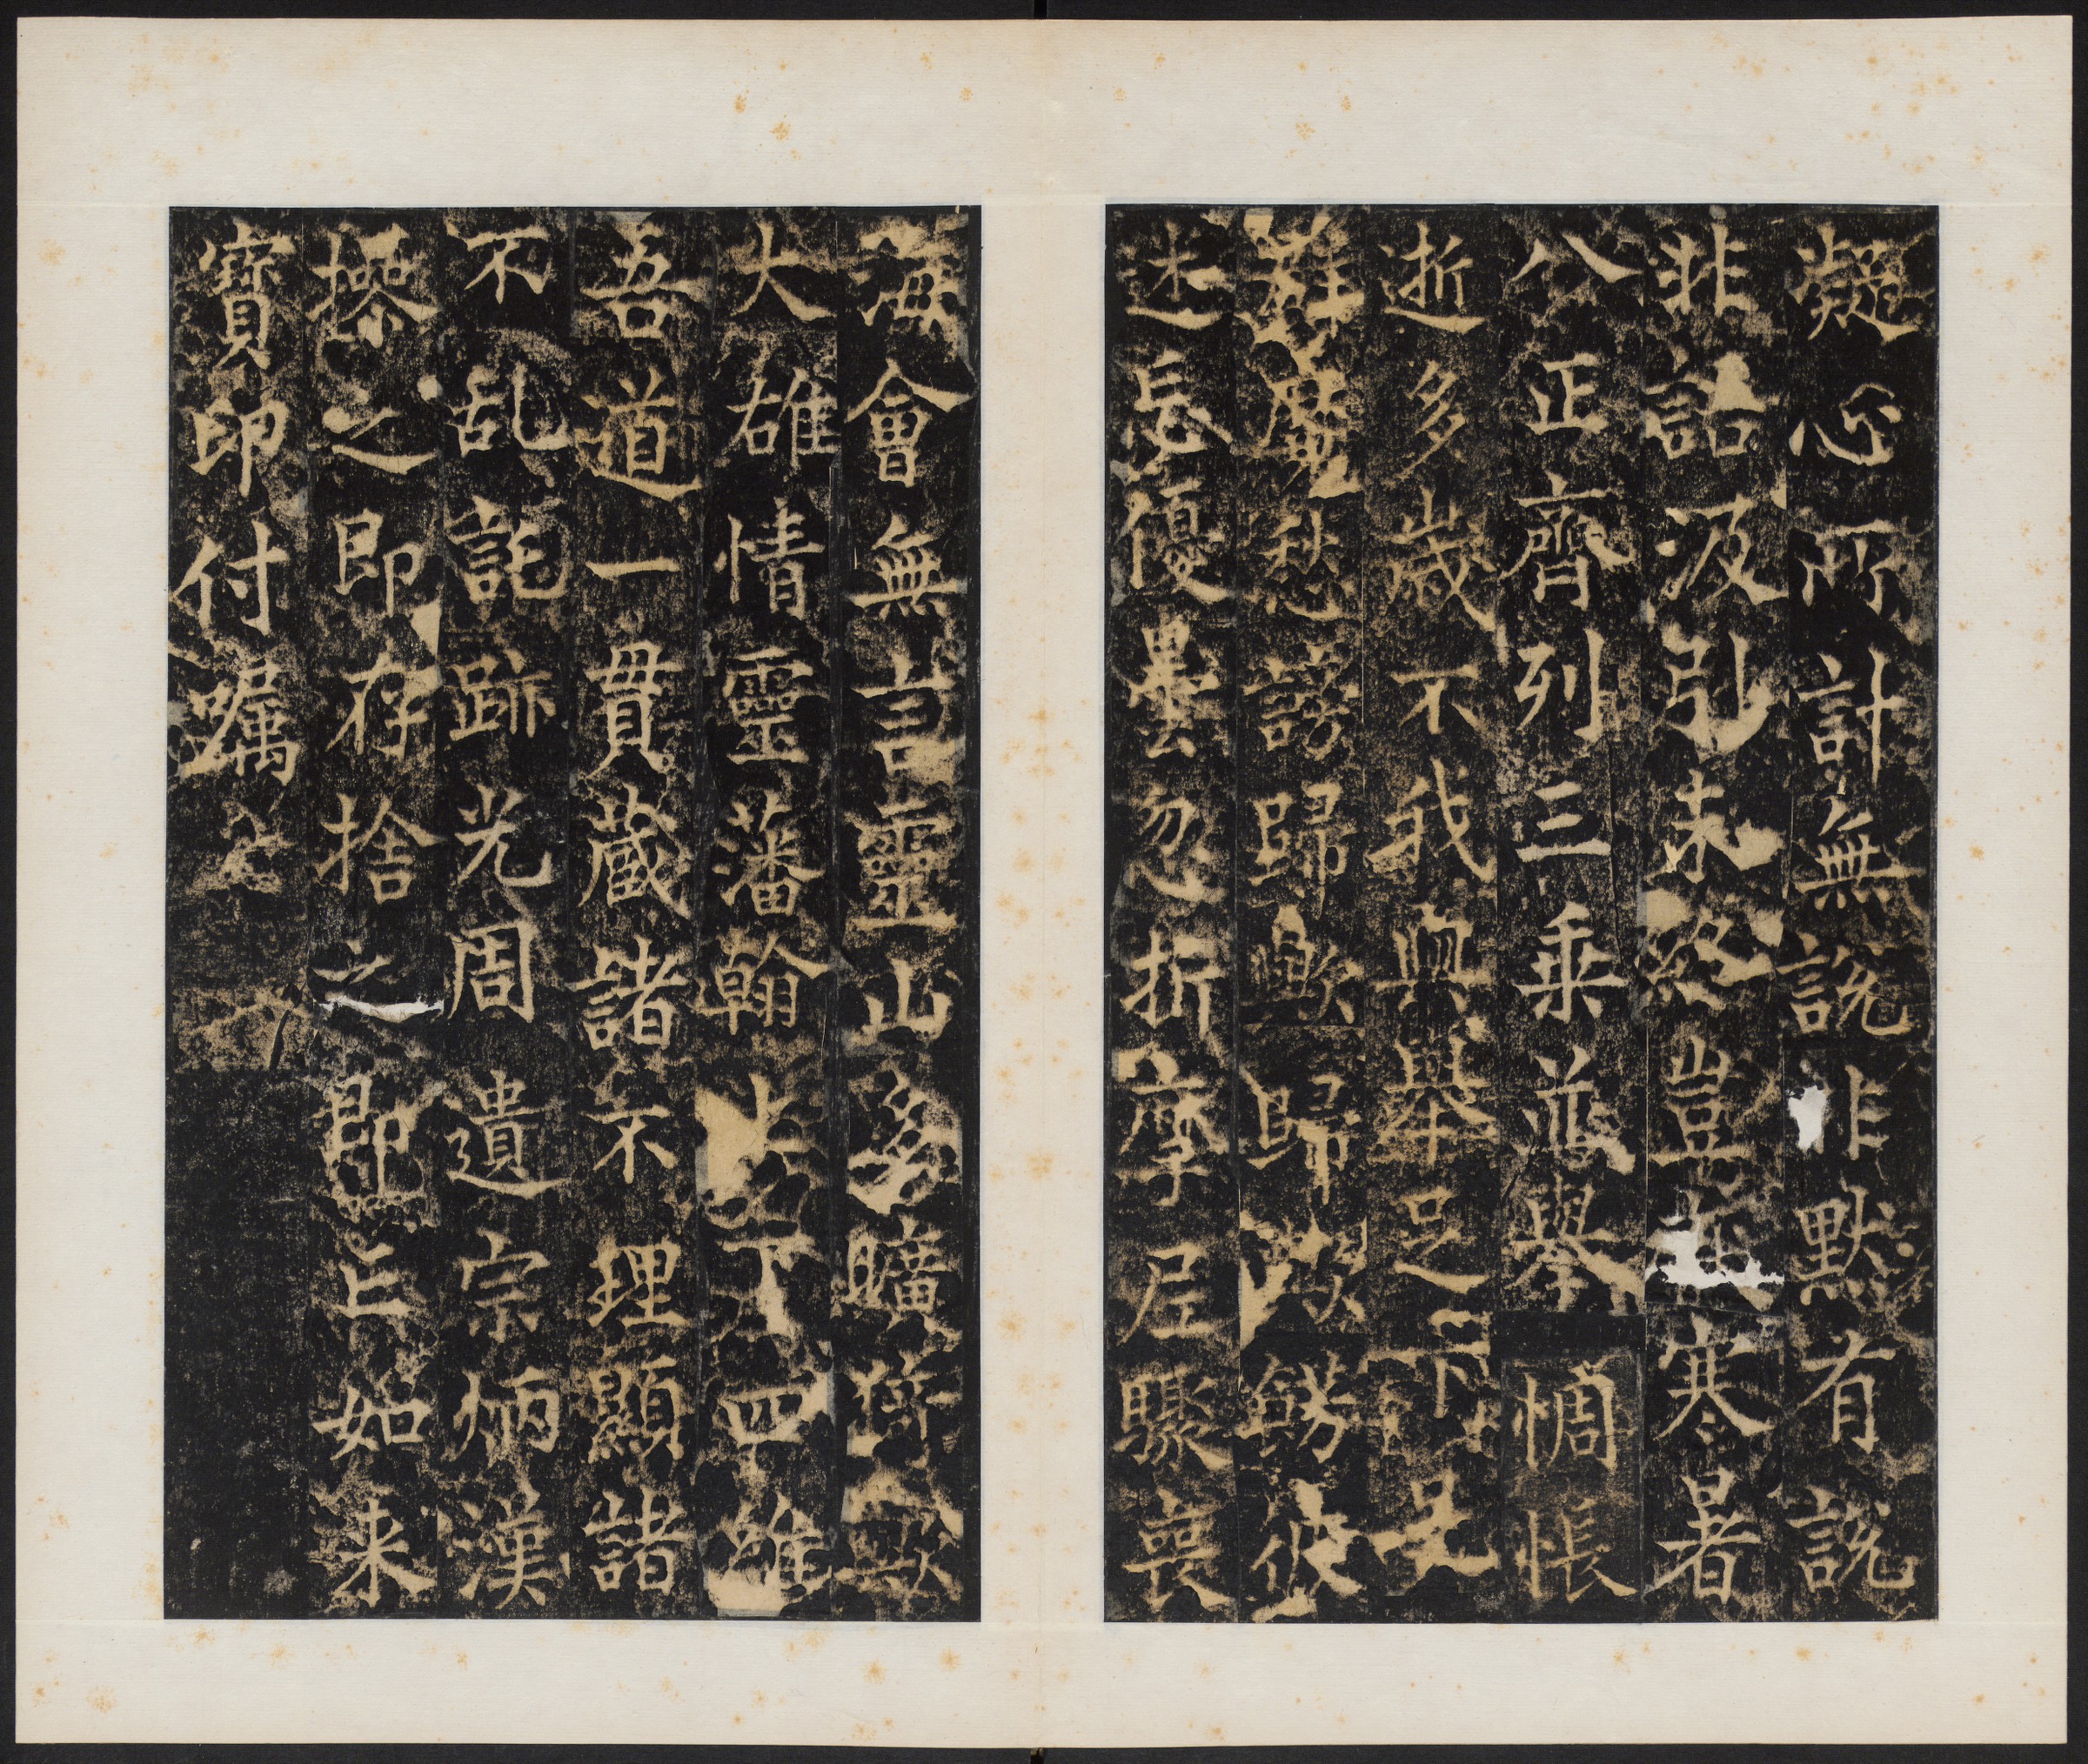 凝心所計無說非默有說
非詔汲引未終豈寒暑
公正齊列三乘並舉惆悵
逝多歲不我與舉足下足
群魔愁謗歸歟歸
迷長優曇忽折摩尼驟喪
海會無言靈山多曠猗歟
大雄情靈藩翰上下四維
吾道一貫藏諸不理顯諸
不乱託跡光周遺宗炳漢
操之即存捨之即亡如来
寶印付囑